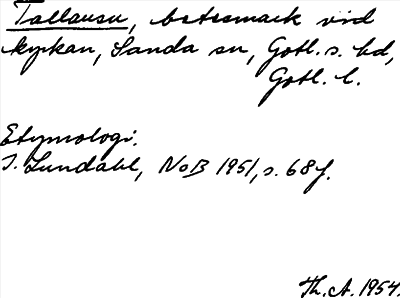 Tallausu, betesmark vid
kyrkan, Sanda sn, Gotl. s. hd,
Gotl. l.
Etymologi.
I. Lundahl, NoB 1951, s. 68f.
Th. A. 1954.